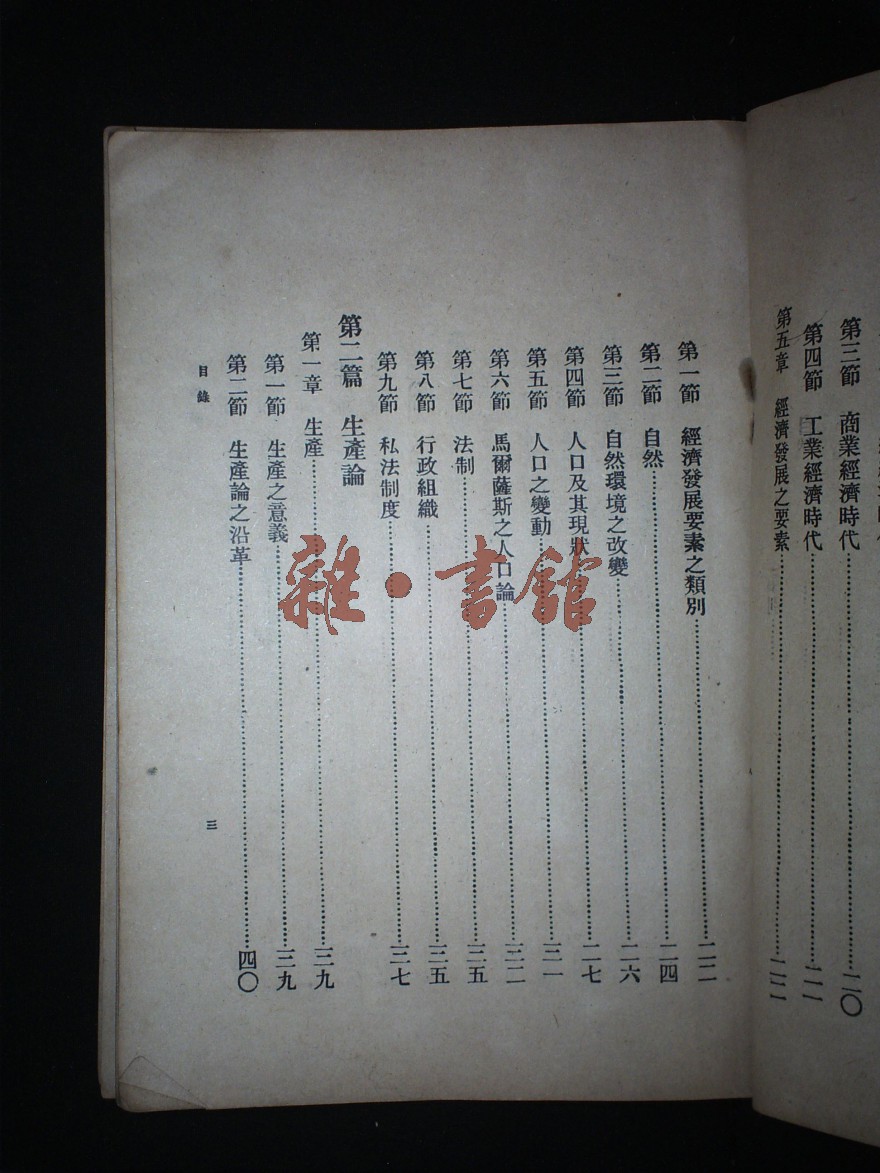 第三節　商業經濟時代……二〇
第四節　工業經濟時代……二一
第五章　經濟發展之要素……二二
第一節　經濟發展要素之類別……二二
第二節　自然……二四
第三節　自然環境之改變……二六
第四節　人口及其現狀……二七
第五節　人口之變動……三一
第六節　馬爾薩斯之人口論……三二
第七節　法制……三五
第八節　行政組織……三五
第九節　私法制度……三七
第二篇　生產論
第一章　生產……三九
第一節　生產之意義……三九
第二節　生產論之沿革……四〇
目錄
三
雜·書館